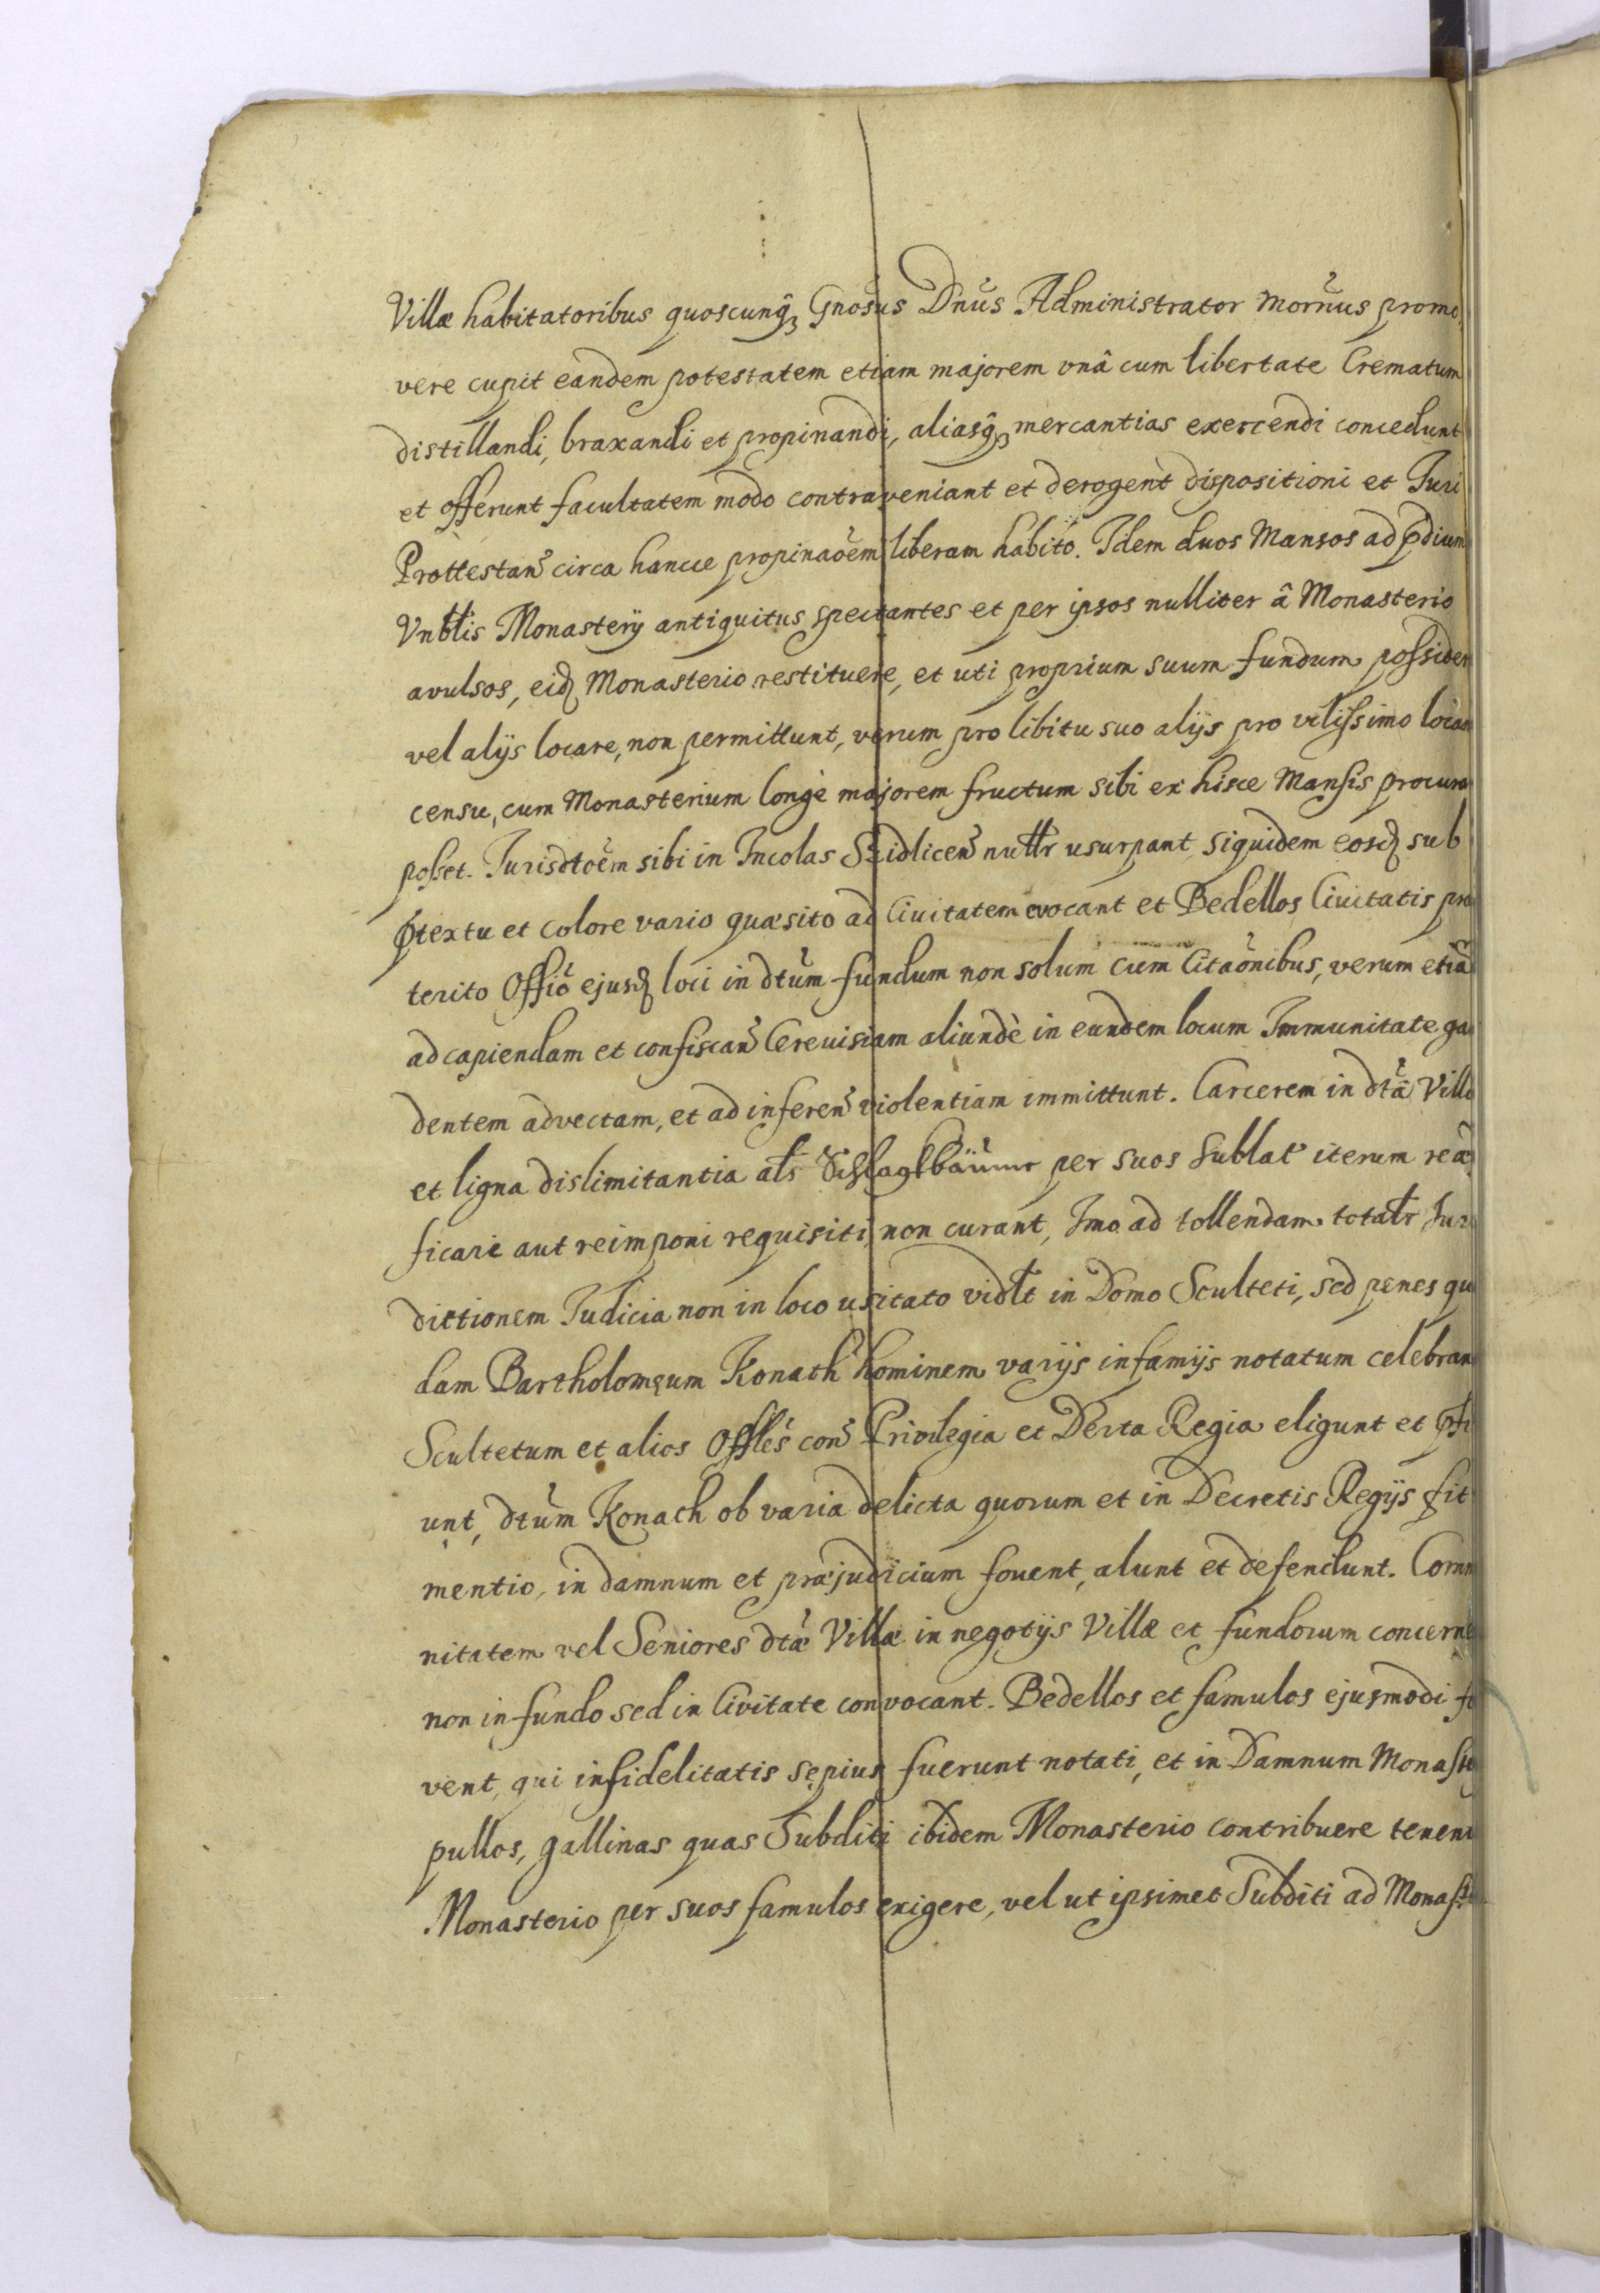 Villæ habitatoribus quoscunq̃ Gnosus Dnus Administrator mornus promo,
vere cupit eandem potestatem etiam majorem vnâ cum libertate Crematum
distillandi, braxandi et propinandi, aliasq̃ mercantias exercendi concedunt
et offerunt facultatem modo contraveniant et derogent dispositioni et Juri
Prottestan̄ circa hancce propinaōem liberam habito. Idem duos Mansos ad p̱dium
Vnblis Monasterÿ antiquitus spectantes et per ipsos nulliter â Monasterio
avulsos, eid Monasterio restituere, et uti proprium suum fundum possider
vel alÿs locare, non permittunt, verum pro libitu suo alÿs pro vilissimo locan
censu, cum Monasterium longè majorem fructum sibi ex hisce Mansis procura
posset. Jurisdtoēm sibi in Incolas Szidlicen̄ nullr usurpant siquidem eosd sub
p̱textu et colore vario quæsito ad Ciuitatem evocant et Bedellos Ciuitatis præ
terito Offiō ejusd loci in dtum fundum non solum cum Citaōnibus, verum etiã
ad capiendam et confiscan̄ Cereuisiam aliundè in eundem locum Immunitate gau
dentem advectam, et ad inferen̄ violentiam immittunt. Carcerem in dtâ Villa
et ligna dislimitantia als Schlagkbäume per suos sublat iterum reæ
ficare aut reimponi requisiti, non curant, Imo ad tollendam totalr Juris
dictionem Judicia non in loco usitato vidlt in Domo Sculteti, sed penes qu
dam Bartholomęum Konach hominem varÿs infamÿs notatum celebran
Scultetum et alios Offles con̄ Privilegia et Decta Regia eligunt et p̱fi
unt, dtum Konach ob varia delicta quorum et in Decretis Regÿs fit
mentio, in damnum et præjudicium fouent, alunt et defendunt. Comm
nitatem vel Seniores dtæ Villæ in negotÿs Villæ et fundorum concerne
non in fundo sed in Civitate convocant. Bedellos et famulos ejusmodi fo
vent, qui infidelitatis sępius fuerunt notati, et in Damnum Monaste
pullos, gallinas quas Subditi ibidem Monasterio contribuere tenent
Monasterio per suos famulos exigere, vel ut ipsimet Subditi ad Monaste